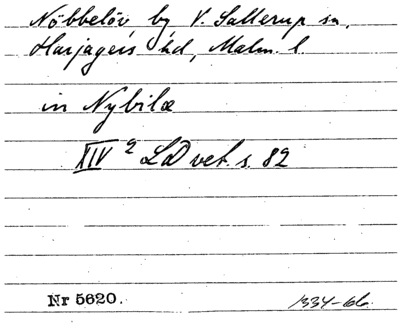 Nöbbelöv by V. Sallerup sn,
Harjagers hd, Malm. l.
in Nybilæ
XIV 2 LD vet. s. 82
Nr 5620.
1334-66.